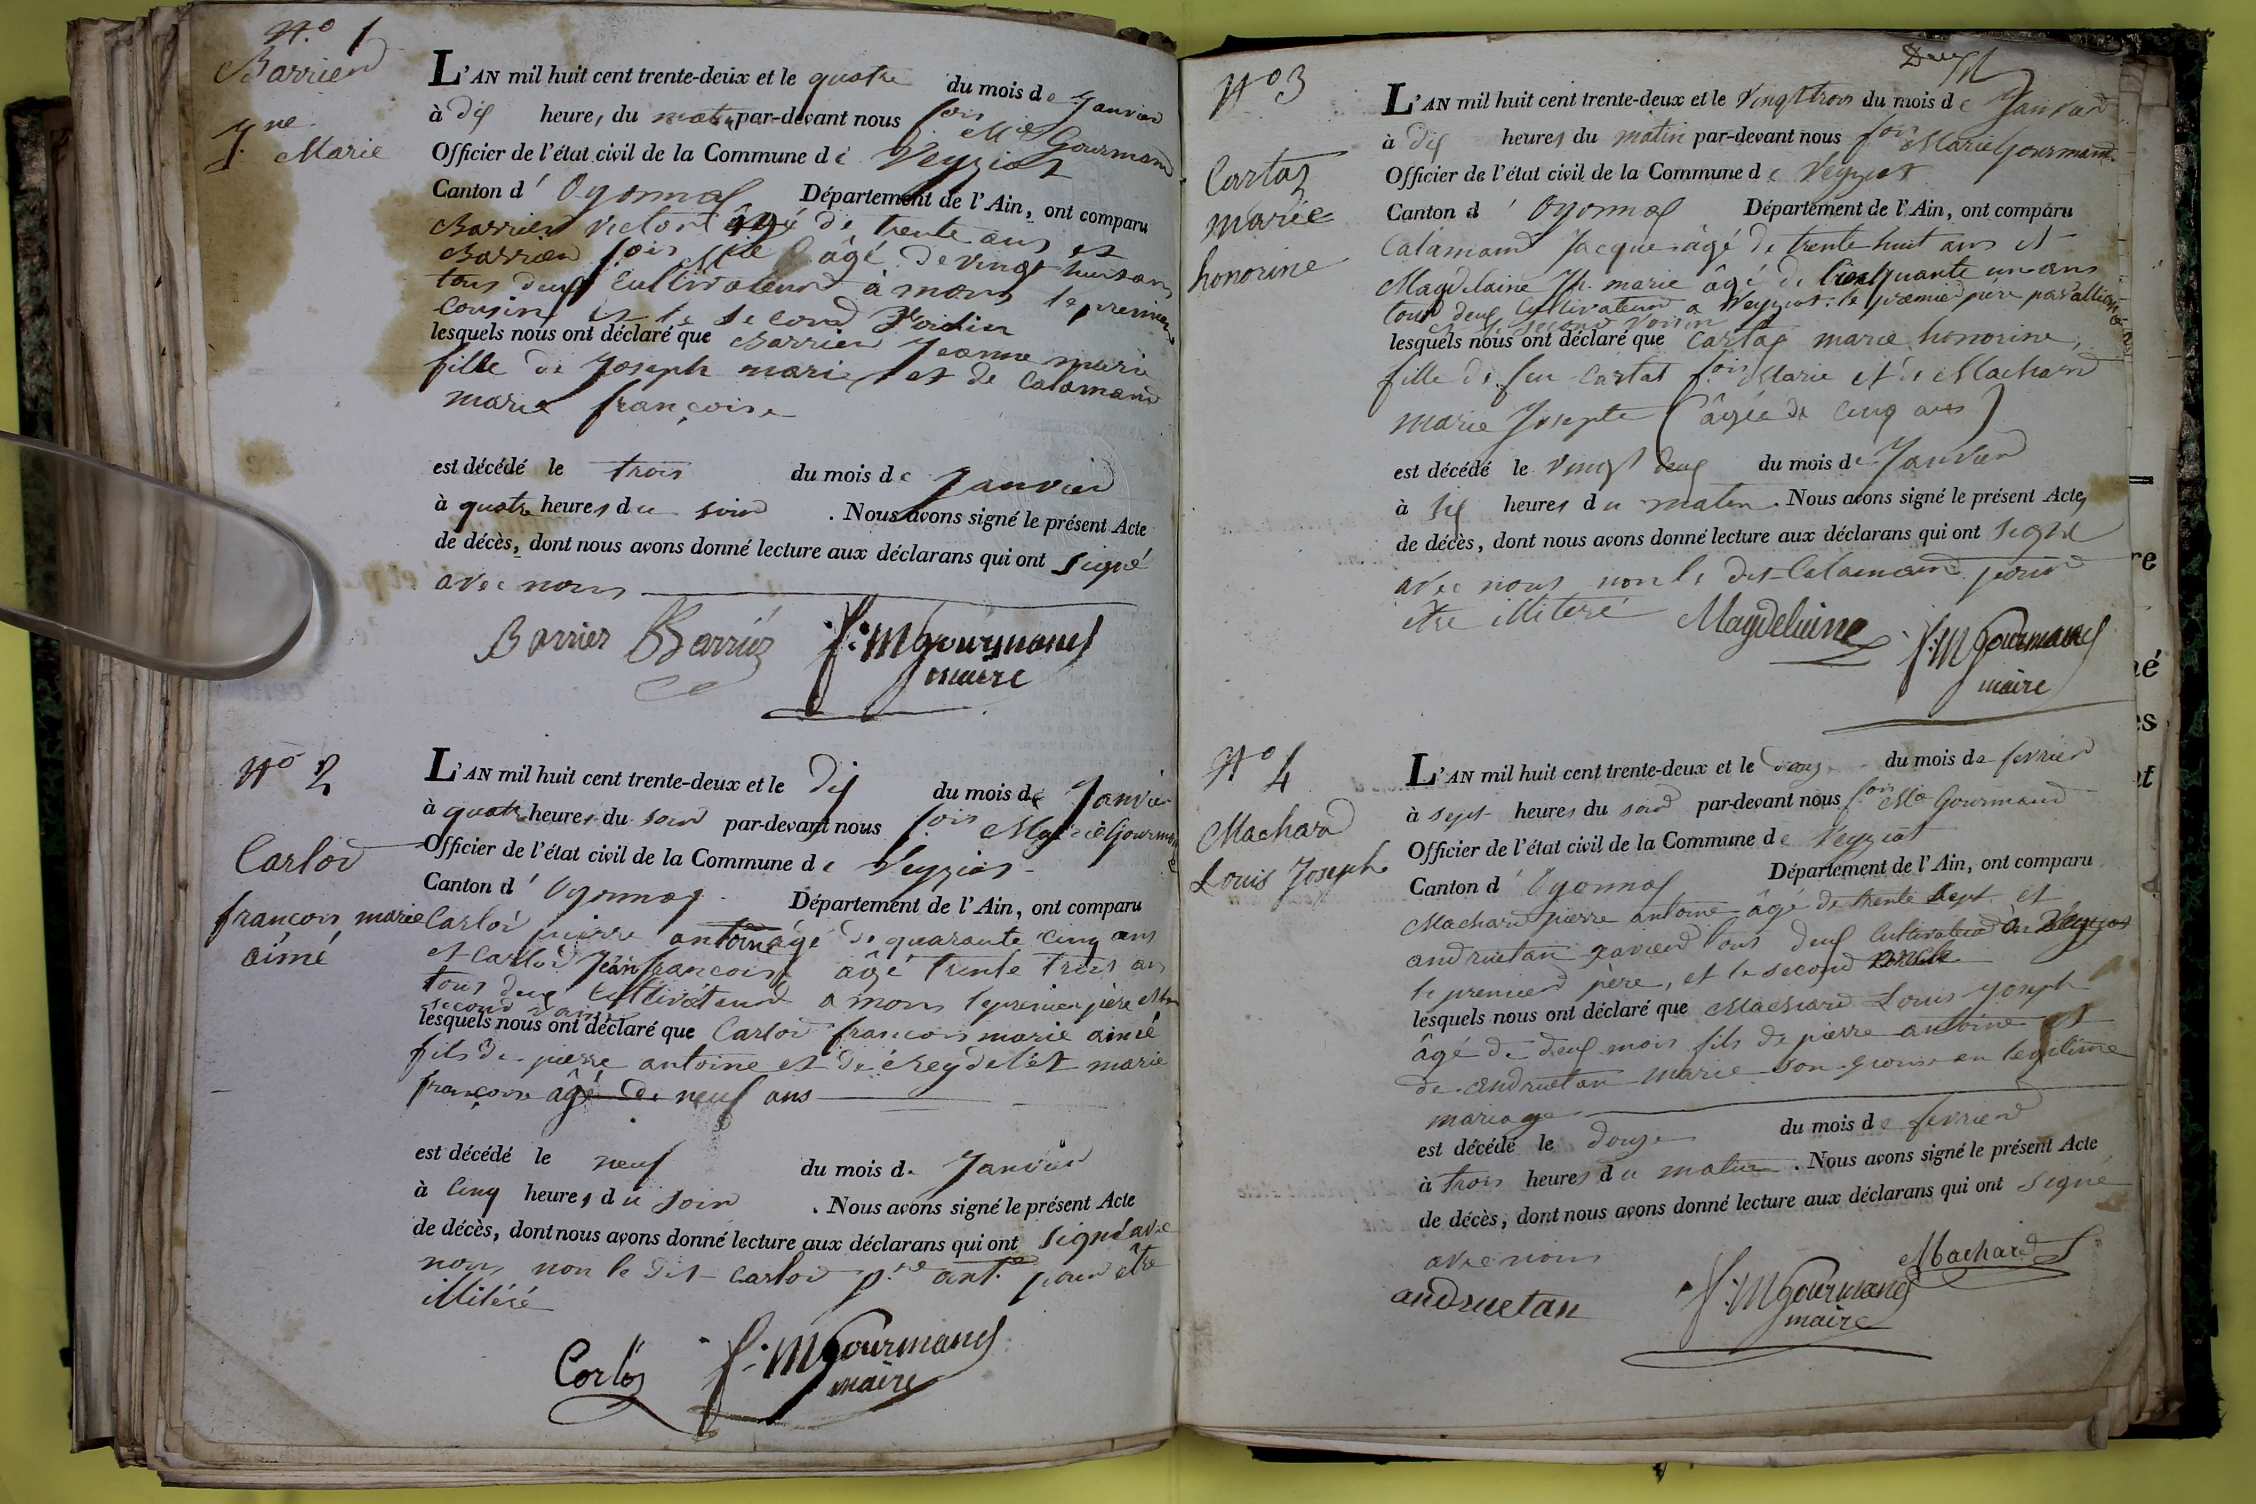 N.o 1
Barrier
J.ne
Marie
L'AN mil huit cent trente-deux et le quatre du mois de Janvier
à dix heures du matin par-devant nous f.ois M.ie Gourmand
Officier de l'état civil de la Commune de Veyziat
Canton d'Oyonnax Département de l'Ain, ont comparu
Barrier Victor âgé de trente ans et
Barrier f.ois M.ie âgé de vingt huit ans
tous deux Cultivateurs à mons le premier
Cousin et le second Voisin
lesquels nous ont déclaré que Barrier Jeanne marie
fille de Joseph marie et de Calamand
marie françoise
est décédé le trois du mois de Janvier
à quatre heures du soir . Nous avons signé le présent Acte
de décès, dont nous avons donné lecture aux déclarans qui ont signé
avec nous
Barrier Barrier f: M Gourmand
maire
N.o 2
Carlod
françois marie
aimé
L'AN mil huit cent trente-deux et le dix du mois de Janvier
à quatre heures du soir par-devant nous f.ois Marie Gourmand
Officier de l'état civil de la Commune de Veyziat
Canton d'Oyonnax Département de l'Ain, ont comparu
Carlod pierre antoine âgé de quarante cinq ans
et Carlod Jean françois âgé trente trois ans
tous deux Cultivateurs a mons le premier père et le
second
lesquels nous ont déclaré que Carlod françois marie aimé
fils de pierre antoine et de éreydelet marie
françoise âgé de neuf ans
est décédé le neuf du mois de Janvier
à Cinq heures du soir . Nous avons signé le présent Acte
de décès, dont nous avons donné lecture aux déclarans qui ont signé avec
nous non le dit Carlod p.re ant.e pour être
illitéré
Carloz f: M Gourmand
maire
Deux
N.o 3
Cartaz
marie
honorine
L'AN mil huit cent trente-deux et le Vingt trois du mois de Janvier
à dix heures du matin par-devant nous f.ois Marie Gourmand
Officier de l'état civil de la Commune de Veyziat
Canton d'Oyonnax Département de l'Ain, ont comparu
Calamand Jacque âgé de trente huit ans et
Magdelaine Jh. marie âgé de Cinquante un ans
tous deux Cultivateurs a Veyziat le premier père par alliance
et le second voisin
lesquels nous ont déclaré que Cartaz marie honorine,
fille de feu Cartat f.ois Marie et de Machard
marie Josepte (âgée de cinq ans)
est décédé le Vingt deux du mois de Janvier
à six heures du matin . Nous avons signé le présent Acte
de décès, dont nous avons donné lecture aux déclarans qui ont signé
avec nous non le dit Calamand pour
être illiteré Magdelaine f: M Gourmand
maire
N.o 4
Machard
Louis Joseph
L'AN mil huit cent trente-deux et le douze du mois de fevrier
à sept heures du soir par-devant nous f.ois M.ie Gourmand
Officier de l'état civil de la Commune de Veyziat
Canton d'Oyonnax Département de l'Ain, ont comparu
Machard pierre antoine âgé de trente sept et
andruetan xavier tous deux Cultivateurs à Veyziat
le premier père, et le second oncle
lesquels nous ont déclaré que Machard Louis Joseph
âgé de deux mois fils de pierre antoine et
de andruetan marie son epouse en legitime
mariage
est décédé le douze du mois de fevrier
à trois heures du matin . Nous avons signé le présent Acte
de décès, dont nous avons donné lecture aux déclarans qui ont signé
avec nous
Machard
andruetan f: M Gourmand
maire